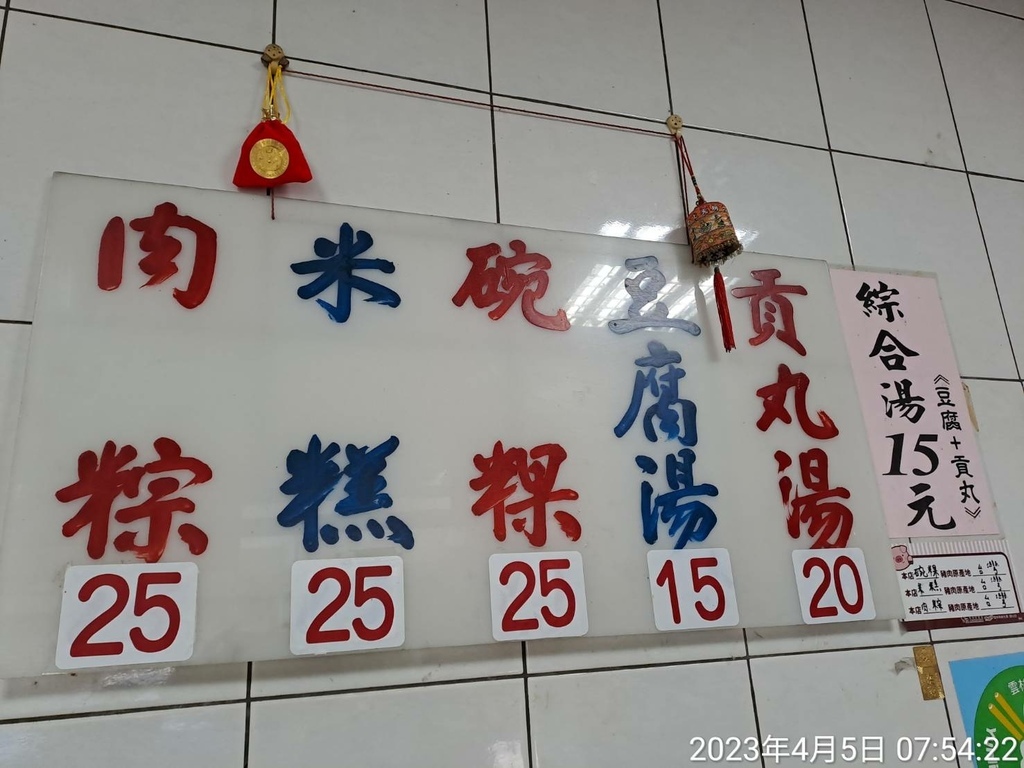 肉粽
25
米糕
25
碗粿
25
豆腐湯
15
貢丸湯
20
綜合湯15元
《豆腐+貢丸》
本店碗粿豬肉原產地 台灣
本店米糕豬肉原產地 台灣
本店肉粽豬肉原產地 台灣
2023年4月5日 07:54:22